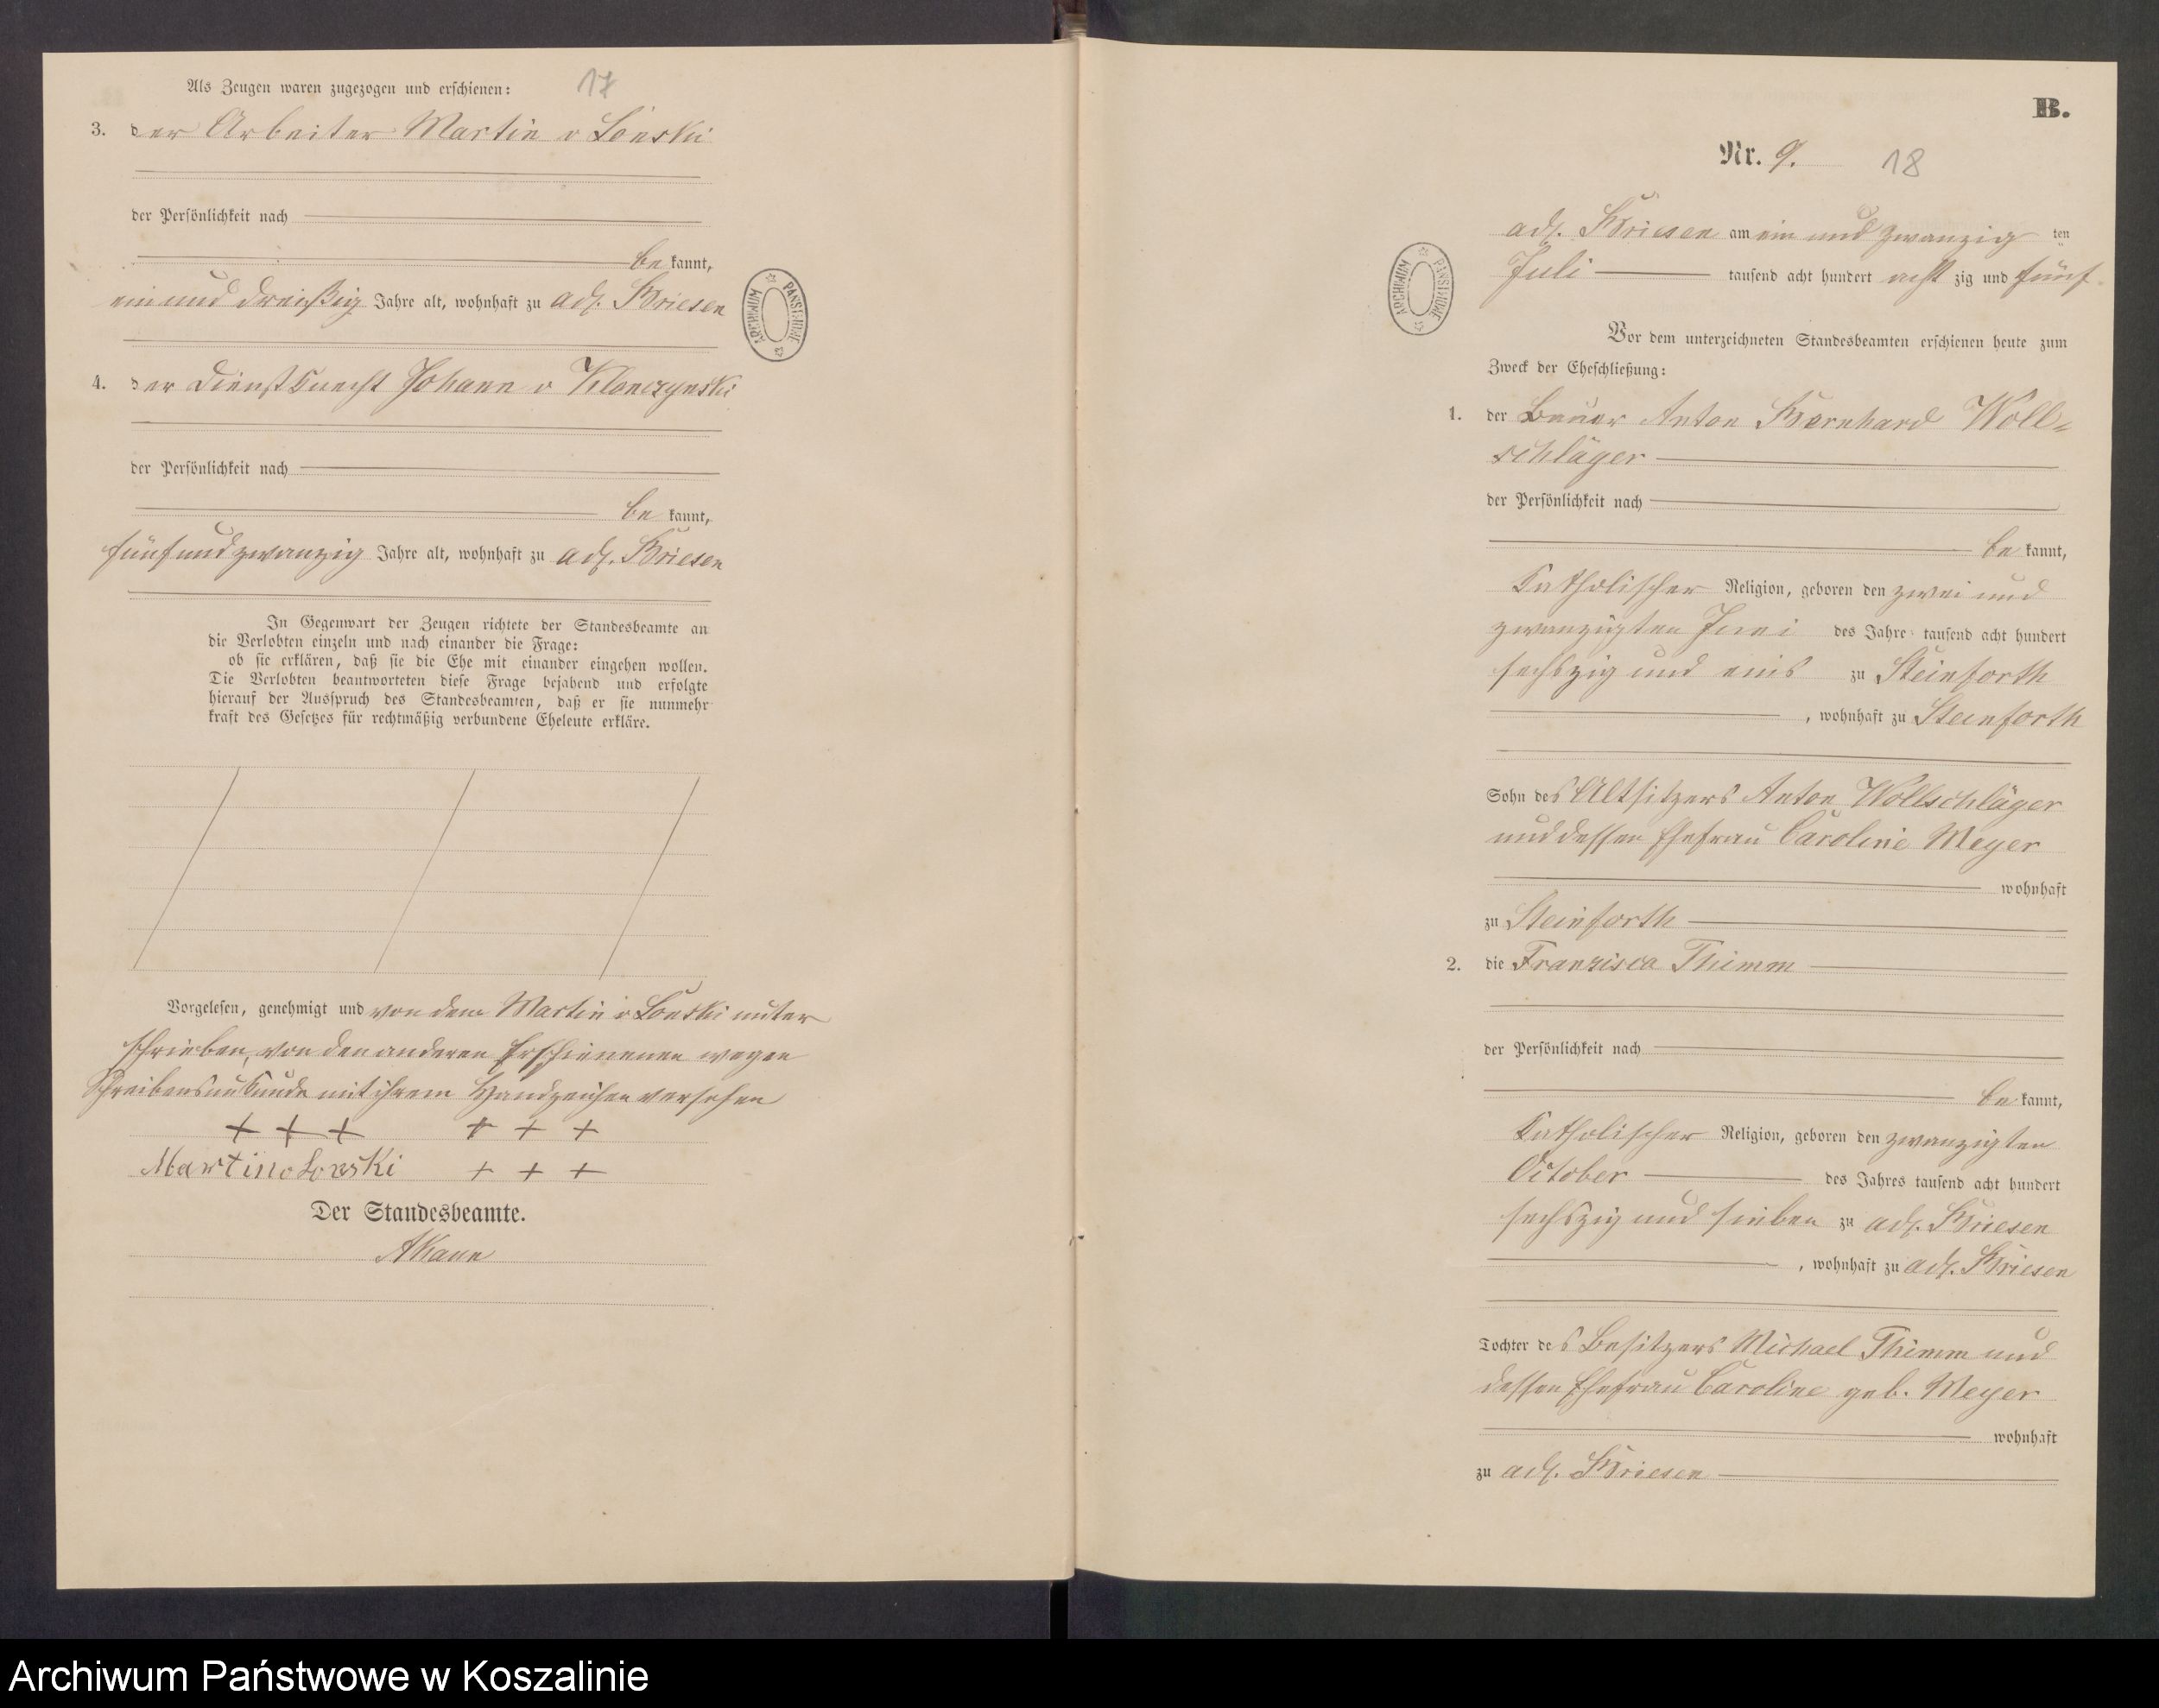 Als Zeugen waren zugezogen und erschienen:
17
3. der Arbeiter Martin v Lonski
der Persönlichkeit nach
be kannt,
ein und dreißig Jahre alt, wohnhaft zu adl. Briesen
4. der Dienstknecht Johann v Klonczynski
der Persönlichkeit nach
be kannt,
fünf und zwanzig Jahre alt, wohnhaft zu adl. Briesen
In Gegenwart der Zeugen richtete der Standesbeamte an
die Verlobten einzeln und nach einander die Frage:
ob sie erklären, daß sie die Ehe mit einander eingehen wollen.
Die Verlobten beantworteten diese Frage bejahend und erfolgte
hierauf der Ausspruch des Standesbeamten, daß er sie nunmehr
kraft des Gesetzes für rechtmäßig verbundene Eheleute erkläre.
Vorgelesen, genehmigt und von dem Martin v Lonski unter
schrieben, von den anderen Erschienenen wegen
Schreibensunkunde mit ihrem Handzeichen versehen
+ + + + + +
Martin v Lonski + + +
Der Standesbeamte.
ARCHIWUM PAŃSTWOWE
B.
Nr. 9. 18
adl. Briesen am ein und zwanzig ten
Juli tausend acht hundert acht zig und fünf
Vor dem unterzeichneten Standesbeamten erschienen heute zum
Zweck der Eheschließung:
1. der Bauer Anton Bernhard Woll-
schläger
der Persönlichkeit nach
be kannt,
katholischer Religion, geboren den zwei und
zwanzigsten Juni des Jahres tausend acht hundert
sechszig und eins zu Steinforth
, wohnhaft zu Steinforth
Sohn des Altsitzers Anton Wollschläger
und dessen Ehefrau Caroline Meyer
wohnhaft
zu Steinforth
2. die Franzisca Thimm
der Persönlichkeit nach
be kannt,
katholischer Religion, geboren den zwanzigsten
October des Jahres tausend acht hundert
sechszig und sieben zu adl. Briesen
, wohnhaft zu adl. Briesen
Tochter des Besitzers Michael Thimm und
dessen Ehefrau Caroline geb. Meyer
wohnhaft
zu adl. Briesen
ARCHIWUM PAŃSTWOWE
Archiwum Państwowe w Koszalinie